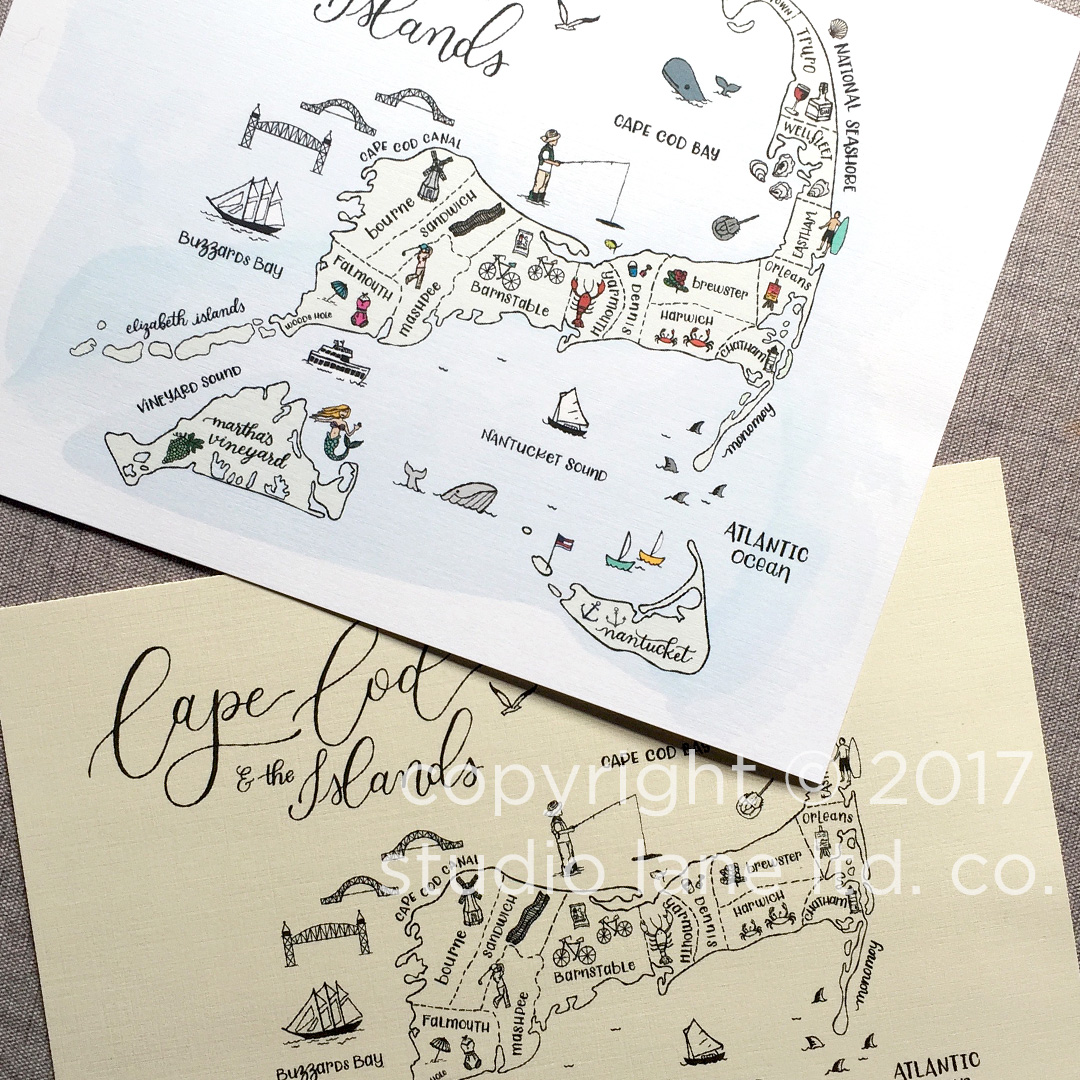 Islands
TOWN
TRURO
NATIONAL SEASHORE
CAPE COD BAY
WELLFLEET
CAPE COD CANAL
bourne
SANDWICH
EASTHAM
Buzzards Bay
ORLeans
FALMOUTH
mashpee
Barnstable
YARMOUTH
Dennis
brewster
HARWICH
CHATHAM
WOODS HOLE
elizabeth islands
VINEYARD SOUND
martha's
vineyard
monomoy
NANTUCKET SOUND
ATLANTIC
ocean
nantucket
Cape Cod
& the Islands
CAPE COD BAY
copyright © 2017
studio lane ltd. co.
ORLeans
CAPE COD CANAL
bourne
SANDWICH
brewster
YARMOUTH
Dennis
HARWICH
CHATHAM
Barnstable
monomoy
FALMOUTH
mashpee
Buzzards Bay
HOLE
ATLANTIC